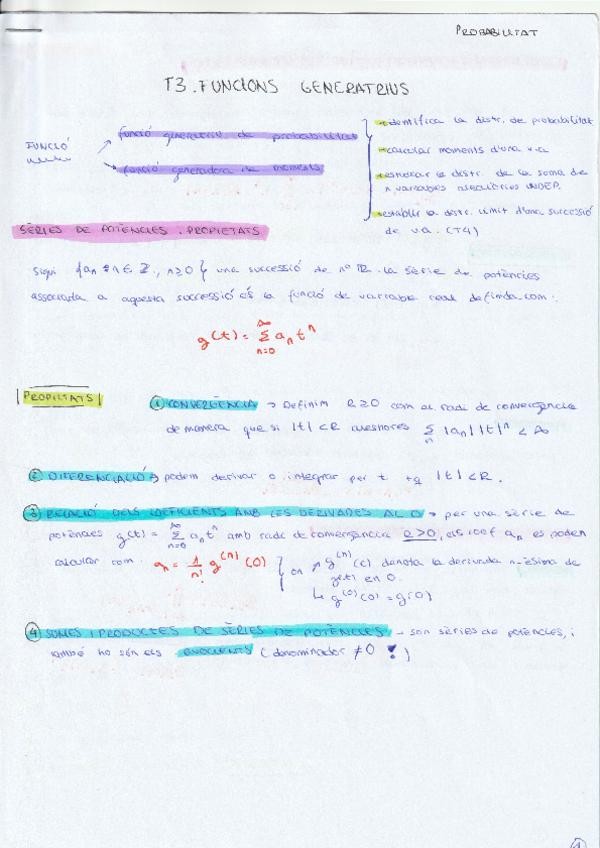 PROBABILITAT
T3. FUNCIONS GENERATRIUS
FUNCIÓ
funció generatriu de probabilitat
funció generadora de moments
→identifica la distr. de probabilitat
→calcular moments d'una v.a
→esbrinar la distr. de la soma de
n variables aleatòries INDEP.
→establir la distr. límit d'una successió
de v.a. (T4)
SÈRIES DE POTÈNCIES. PROPIETATS
Sigui {an : n ∈ Z, n≥0} una successió de nº R. La sèrie de potències
associada a aquesta successió és la funció de variable real definida com:
g(t) = ∑_{n=0}^{∞} a_n t^n
PROPIETATS
① CONVERGÈNCIA → Definim R≥0 com al radi de convergència
de manera que si |t|<R aleshores ∑_n |a_n| |t|^n < ∞
② DIFERENCIACIÓ → podem derivar o integrar per t tq |t|<R.
③ RELACIÓ DELS COEFICIENTS AMB LES DERIVADES AL 0 → per una sèrie de
potències g(t) = ∑_{n=0}^{∞} a_n t^n amb radi de convergència R>0, els coef a_n es poden
calcular com: a_n = 1/n! g^(n)(0) { on → g^(n)(0) denota la derivada n-èsima de
g(t) en 0.
↳ g^(0)(0) = g(0)
④ SOMES I PRODUCTES DE SÈRIES DE POTÈNCIES → són sèries de potències, i
també ho són els QUOCIENTS (denominador ≠0 !)
1